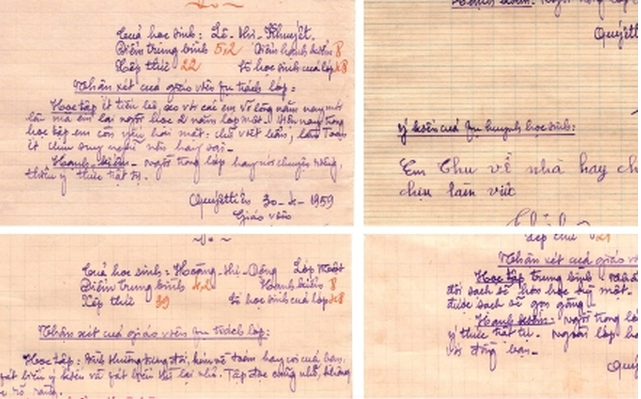 Của học sinh: Lê-thị-Khuyết.
Điểm trung bình 5,2 Điểm hạnh kiểm 8
Xếp thứ 22 Số học sinh của lớp 48
Nhận xét của giáo viên phụ trách lớp:
Học tập ít tiến bộ, so với các em
mà em lại ngồi học 2 năm lớp một.
học tập em còn yếu hai mặt: chữ viết kém, làm Toán
ít chịu suy nghĩ nên hay sai.
Hạnh kiểm - Ngồi trong lớp hay nói chuyện riêng,
thiếu ý thức trật tự.
Quyết tiến 30-X-1959
Giáo viên
Quyết
Ý kiến của phụ huynh học sinh:
Em Thu về nhà hay ch
chịu làm việc
Của học sinh: Hoàng-thị-Động Lớp Một
Điểm trung bình 4,2 Hạnh kiểm 8
Xếp thứ 39 Số học sinh của lớp 48
Nhận xét của giáo viên phụ trách lớp:
Học tập:
phát biểu ý kiến và phát biểu thì lại nhỏ. Tập đọc cũng nhỏ, không
rõ ràng.
Xếp thứ 21
Nhận xét của giáo v
Học tập trung bình
được sạch sẽ gọn gàng.
Hạnh kiểm: Ngồi trong lớ
ý thức trật tự. Ngoài lớp h
với đồng bạn.
Quy